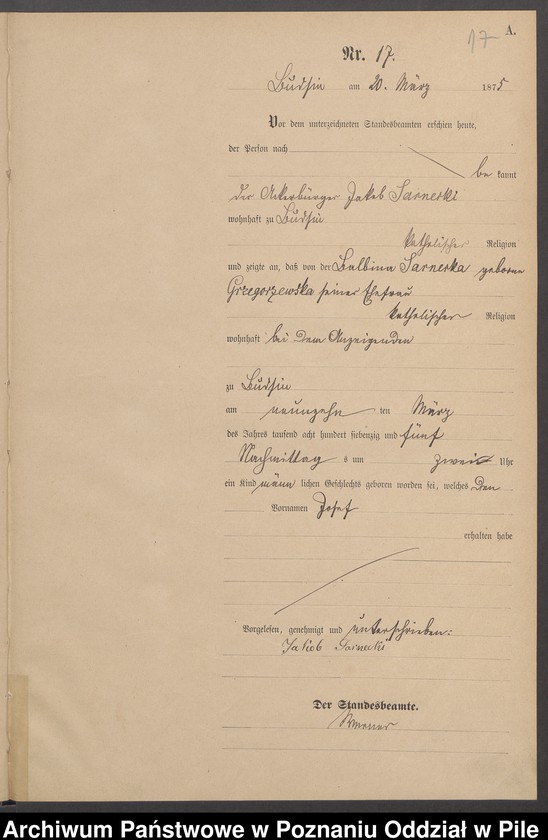 17
A.
Nr. 17.
Budsin am 20. März 1875
Vor dem unterzeichneten Standesbeamten erschien heute,
der Person nach
be kannt
der Ackerbürger Jakob Sarnecki
wohnhaft zu Budsin
katholischer Religion
und zeigte an, daß von der Balbina Sarnecka geborene
Grzegorzewska seiner Ehefrau
katholischer Religion
wohnhaft bei dem Anzeigenden
zu Budsin
am neunzehn ten März
des Jahres tausend acht hundert siebenzig und fünf
Nachmittag s um zwei Uhr
ein Kind männ lichen Geschlechts geboren worden sei, welches den
Vornamen Josef
erhalten habe
Vorgelesen, genehmigt und unterschrieben:
Jakob Sarnecki
Der Standesbeamte.
Archiwum Państwowe w Poznaniu Oddział w Pile